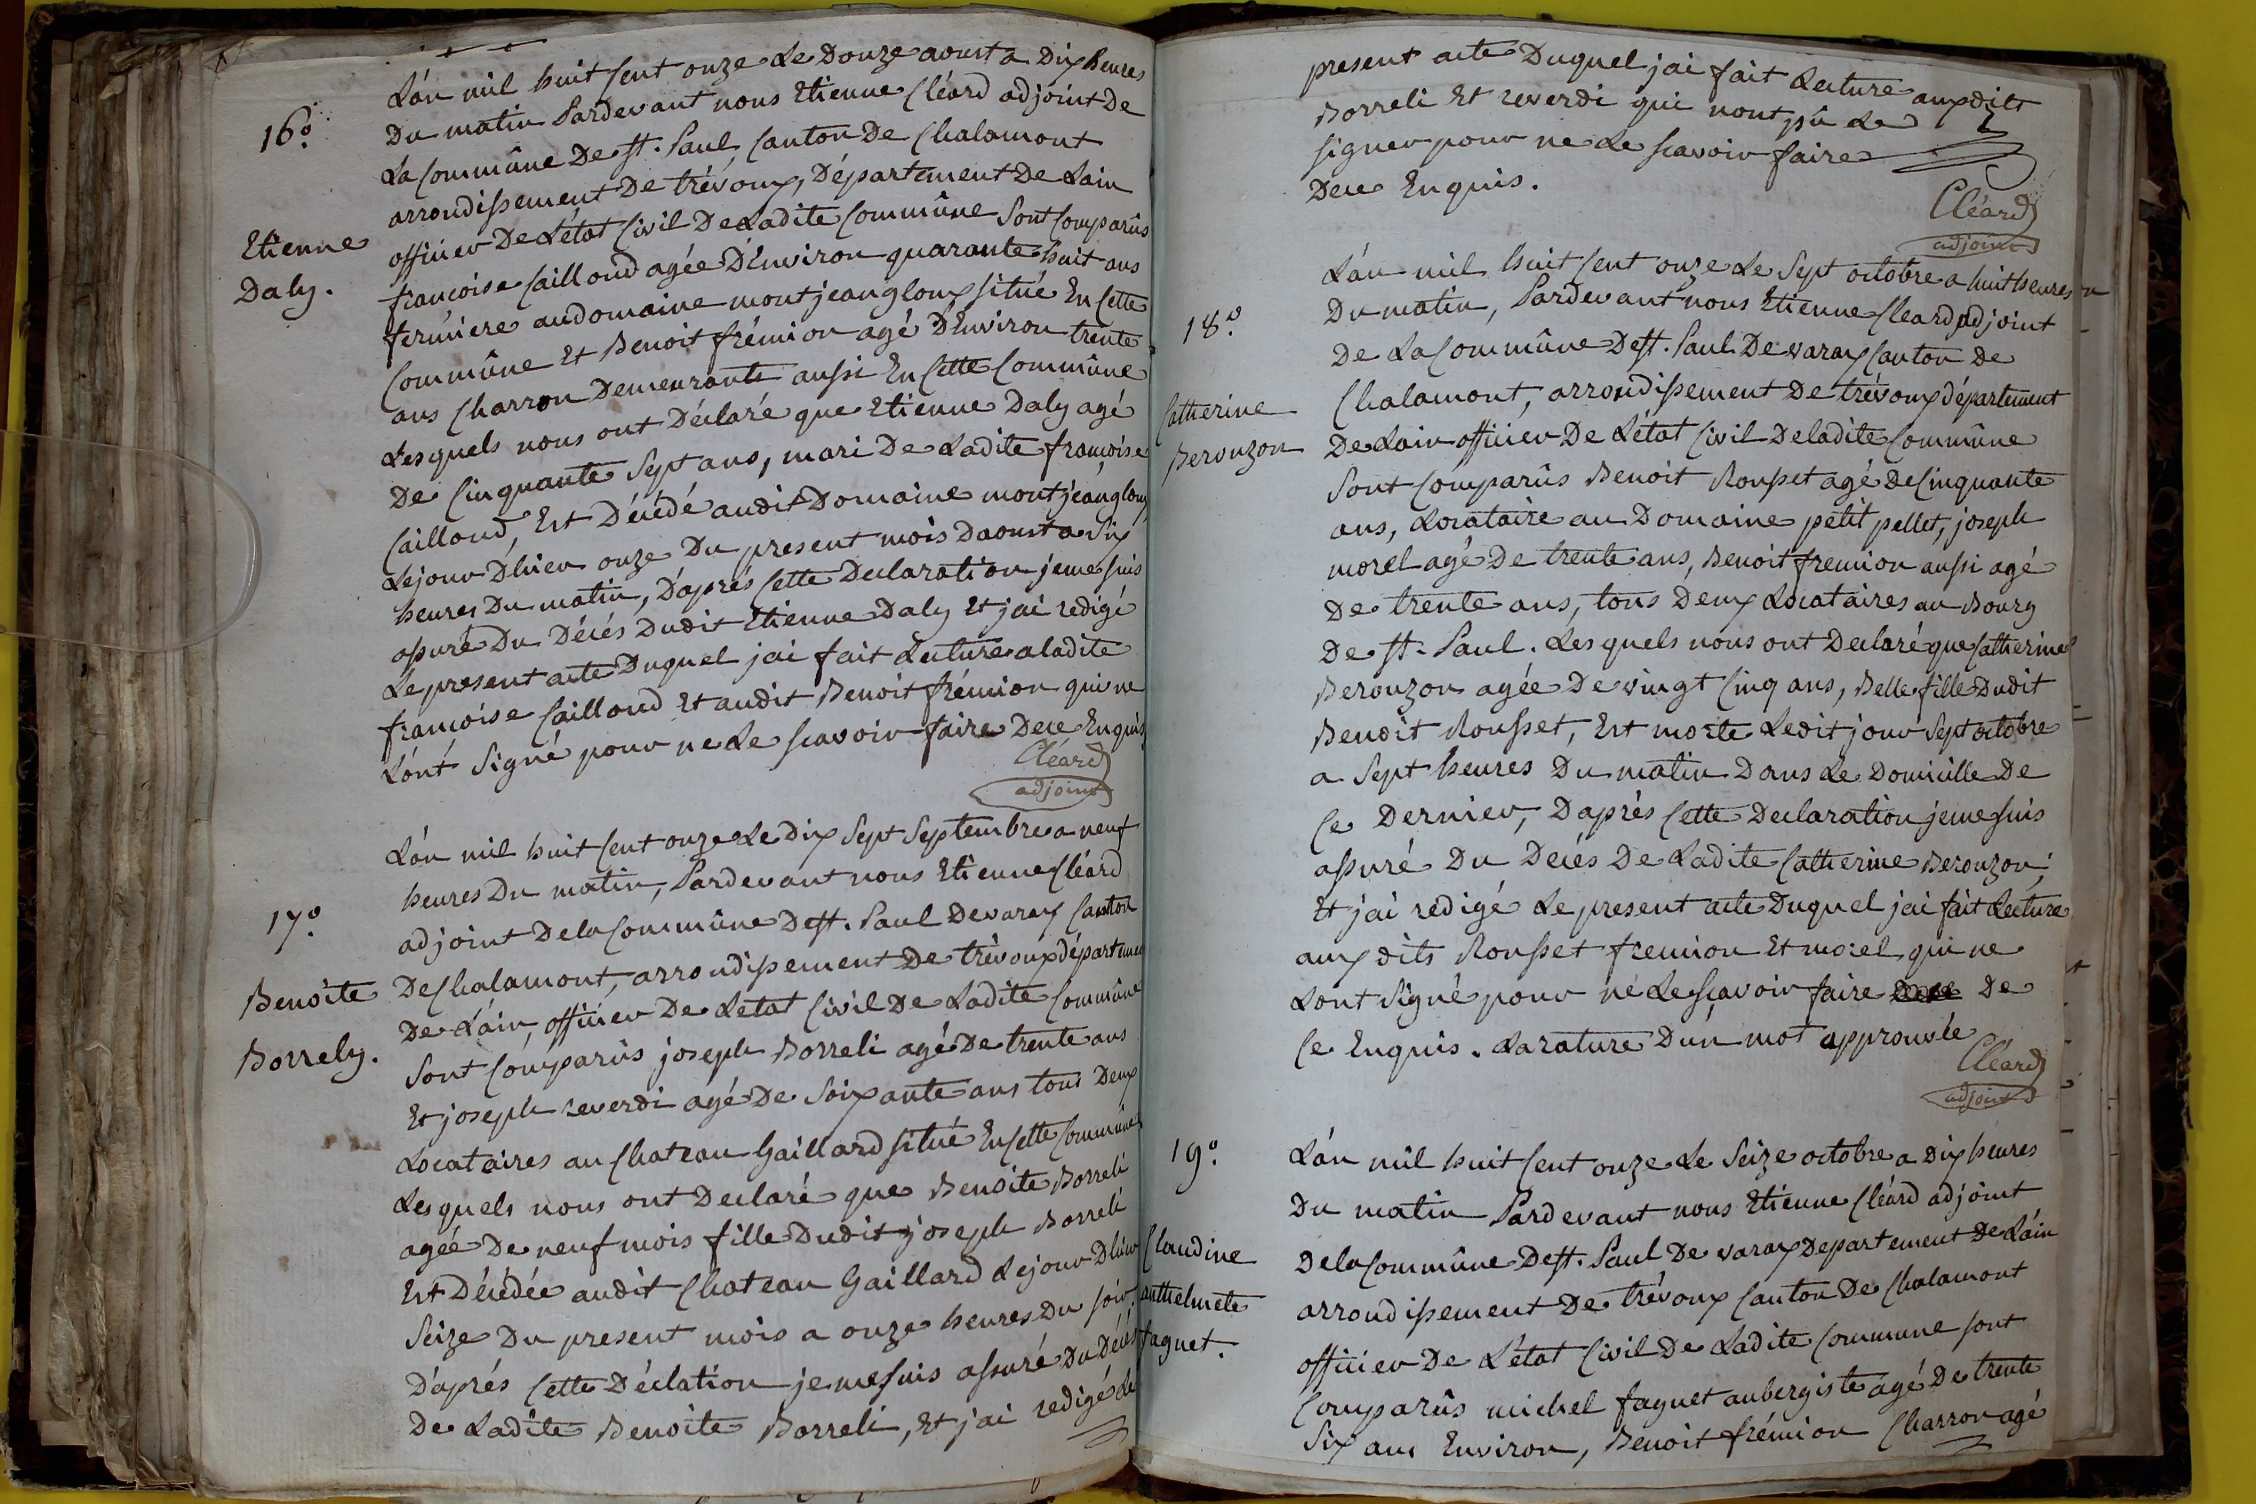 16º.
Etienne
Daly.
L'án mil huit Cent onze Le Douze aoust a Dix heures
Du matin Pardevant nous Etienne Cléard adjoint De
La Commûne De St. Paul, Canton De Chalamont
arrondissement De trévoux, Département De Lain
officier De L'état Civil De Ladite Commûne Sont Comparûs
francoise Caillond agée D'Environ quarante huit ans
fermiere audomaine montjeangloux situé En Cette
Commûne Et Benoit frémion agé D'Environ trente
ans Charron Demeurants aussi En Cette Commûne
Lesquels nous ont Déclaré que Etienne Daly agé
De Cinquante Sept ans, mari De Ladite francoise
Caillond, Est Décédé audit Domaine montjeangloux
Lejour Dhier onze Du present mois Daoust a Six
heures Du matin, D'aprés Cette Declaration jeme suis
assuré Du Décés Dudit Etienne Daly Et jai redigé
Le present acte Duquel jai fait Lecture aladite
francoise Caillond Et audit Benoit frémion qui ne
L'ónt Signé pour ne Le scavoir faire Dece Enquis
Cléard
adjoint
17º.
Benoite
Borrely.
L'án mil huit Cent onze Le Dix Sept Septembre a neuf
heures Du matin, Pardevant nous Etienne Cléard
adjoint Dela Commûne De St. Paul De varax Canton
De Chalamont, arrondissement De trévoux département
De L'áin, officier De Letat Civil De Ladite Commûne
Sont Comparûs joseph Borreli agé De trente ans
Et joseph reverdi agé De Soixante ans tous Deux
Locataires au Chateau Gaillard situé En Cette Commûne
Lesquels nous ont Declaré que Benoite Borreli
agée De neuf mois fille Dudit joseph Borreli
Est Décédée audit Chateau Gaillard Lejour Dhier
Seize Du present mois a onze heures Du soir,
D'aprés Cette Déclation jemesuis assuré Du Décés
De Ladite Benoite Borreli, Et j'ai redigé Le
present acte Duquel jai fait Lecture auxdits
Borreli Et reverdi qui nont pû Le
signer pour ne Le scavoir faire
Dece Enquis.
Cléard
adjoint
18º.
Catherine
Berouzon
L'án mil huit Cent onze Le Sept octobre a huit heures
Du matin, Pardevant nous Etienne Cleard adjoint
De La Commûne De St. Paul De varax Canton De
Chalamont, arrondissement De trévoux département
De Lain officier De L'état Civil Deladite Commûne
Sont Comparûs Benoit Rousset agé De Cinquante
ans, Locataire au Domaine petit pellet, joseph
morel agé De trente ans, Benoit fremion aussi agé
De trente ans, tous Deux Locataires au Bourg
De St. Paul. Lesquels nous ont Declaré que Catherine
Berouzon agée De vingt Cinq ans, Belle fille Dudit
Benoit Rousset, Est morte Ledit jour Sept octobre
a Sept heures Du matin Dans Le Domicille De
Ce Dernier, D'aprés Cette Declaration jeme suis
assuré Du Decés De Ladite Catherine Berouzon,
Et j'ai redigé Le present acte Duquel jai fait Lecture
aux dits Rousset fremion Et morel qui ne
Lont Signé pour né Le Scavoir faire De
Ce Enquis. La rature D'un mot approuvée
Cléard
adjoint
19º.
Claudine
anthelmete
faguet.
L'án mil huit Cent onze Le Seize octobre a Dix heures
Du matin Pardevant nous Etienne Cléard adjoint
Dela Commûne De St. Paul De varax Departement De L'áin
arrondissement De trévoux Canton De Chalamont
officier De L'état Civil De Ladite Commune sont
Comparûs michel faguet aubergiste agé De trente
Six ans Environ, Benoit frémion Charron agé